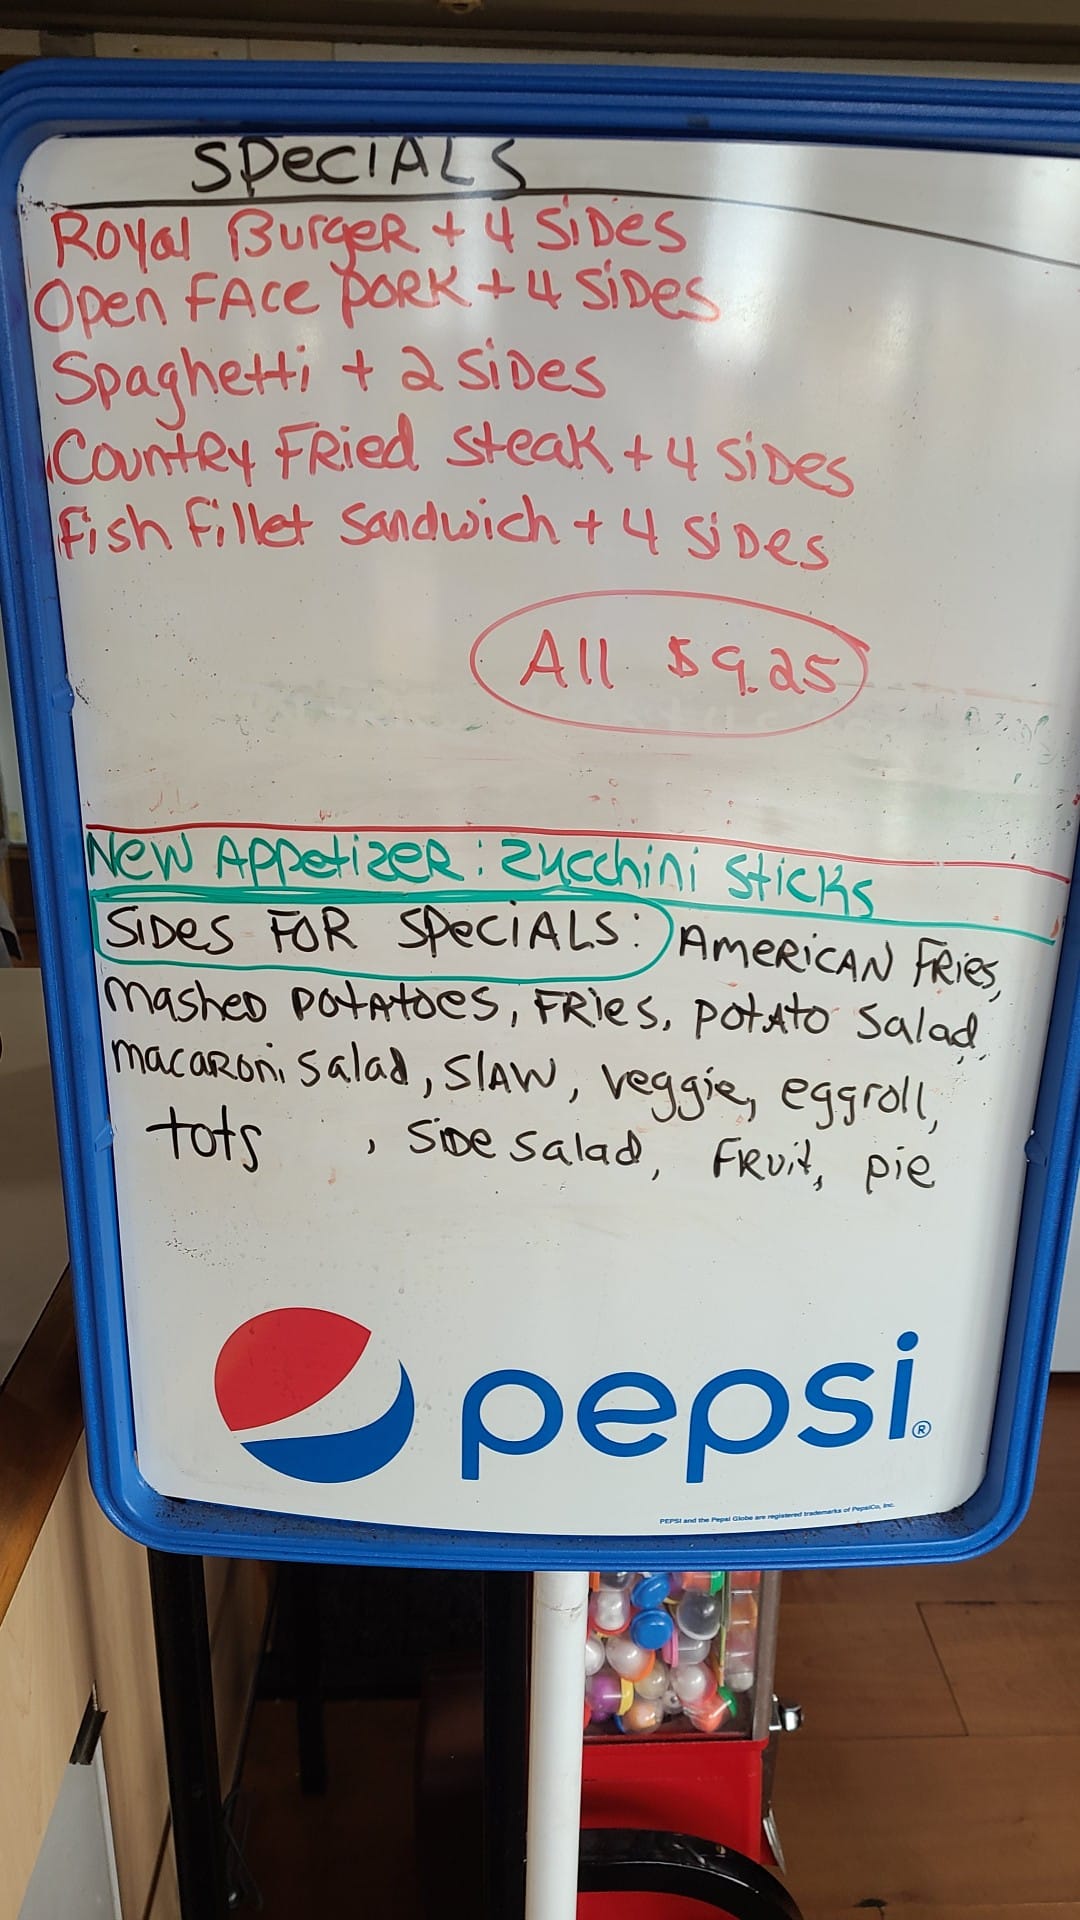 SPeciALS
Royal BurgeR + 4 SiDes
Open FAce PORK + 4 SiDes
Spaghetti + 2 SiDes
CountRy FRied steak + 4 SiDes
Fish fillet Sandwich + 4 SiDes
All $9.25
New AppetizeR: Zucchini Sticks
SiDes FOR SPeciALS: AMeRiCAN FRies,
mashed POtAtoes, FRies, PotAto Salad,
macaRoni Salad, SlAW, veggie, eggroll,
tots , SiDe Salad, FRuit, pie
pepsi®
PEPSI and the Pepsi Globe are registered trademarks of PepsiCo, Inc.